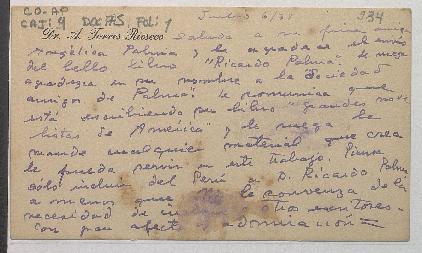 CO-AP
CAJ: 4 DOC 75, Fol: 1
Junio 6/38 934
Dr. A. Torres Rioseco saluda a su fina amiga
Angélica Palma y le agradece el envío
del bello libro "Ricardo Palma". Le ruega
agradezca en su nombre a la Sociedad
amigos de Palma. Le comunica que
está escribiendo su libro "Grandes nove-
listas de América" y le ruega le
mande cualquier material que crea
le pueda servir en este trabajo. Piensa
sólo incluir del Perú a D. Ricardo Palma
a menos que le convenza de la
necesidad de otros escritores.
Con gran afecto y admiración